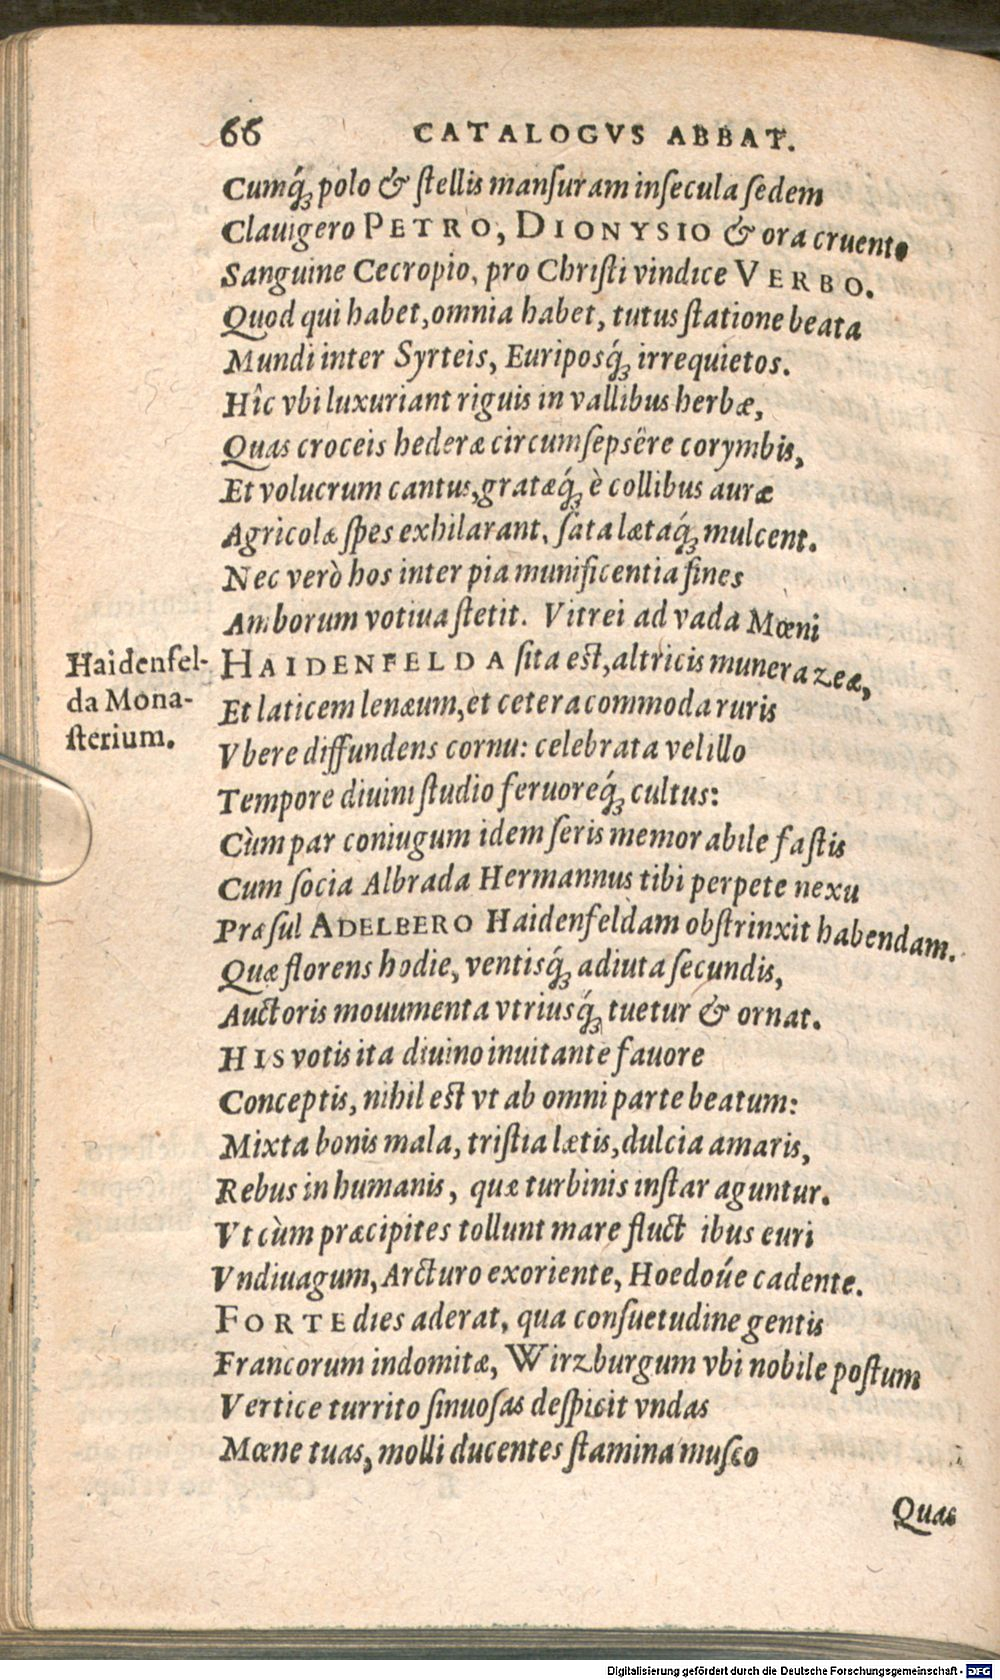 66 CATALOGVS ABBAT.
Cumq́ꝫ polo & ſtellis manſuram in ſecula ſedem
Clauigero PETRO, DIONYSIO & ora cruento
Sanguine Cecropio, pro Chriſti vindice VERBO.
Quod qui habet, omnia habet, tutus ſtatione beata
Mundi inter Syrteis, Euriposq́ꝫ irrequietos.
Hîc vbi luxuriant riguis in vallibus herbæ,
Quas croceis hederæ circumſepsêre corymbis,
Et volucrum cantus, gratæq́ꝫ è collibus auræ
Agricolæ ſpes exhilarant, ſata lætaq́ꝫ mulcent.
Nec verò hos inter pia munificentia fines
Amborum votiua ſtetit. Vitrei ad vada Mœni
Haidenfel-
da Mona-
ſterium.
HAIDENFELDA ſita eſt, altricis munera zeæ,
Et laticem lenæum, et cetera commoda ruris
Vbere diffundens cornu: celebrata vel illo
Tempore diuini ſtudio feruoreq́ꝫ cultus:
Cùm par coniugum idem ſeris memorabile faſtis
Cum ſocia Albrada Hermannus tibi perpete nexu
Præſul ADELBERO Haidenfeldam obſtrinxit habendam.
Quæ florens hodie, ventisq́ꝫ adiuta ſecundis,
Auctoris monumenta vtriusq́ꝫ tuetur & ornat.
HIS votis ita diuino inuitante fauore
Conceptis, nihil eſt vt ab omni parte beatum:
Mixta bonis mala, triſtia lætis, dulcia amaris,
Rebus in humanis, quæ turbinis inſtar aguntur.
Vt cùm præcipites tollunt mare fluctibus euri
Vndiuagum, Arcturo exoriente, Hoedoúe cadente.
FORTE dies aderat, qua conſuetudine gentis
Francorum indomitæ, Wirzburgum vbi nobile poſtum
Vertice turrito ſinuoſas deſpicit vndas
Mœne tuas, molli ducentes ſtamina muſco
Quas
Digitalisierung gefördert durch die Deutsche Forschungsgemeinschaft - DFG